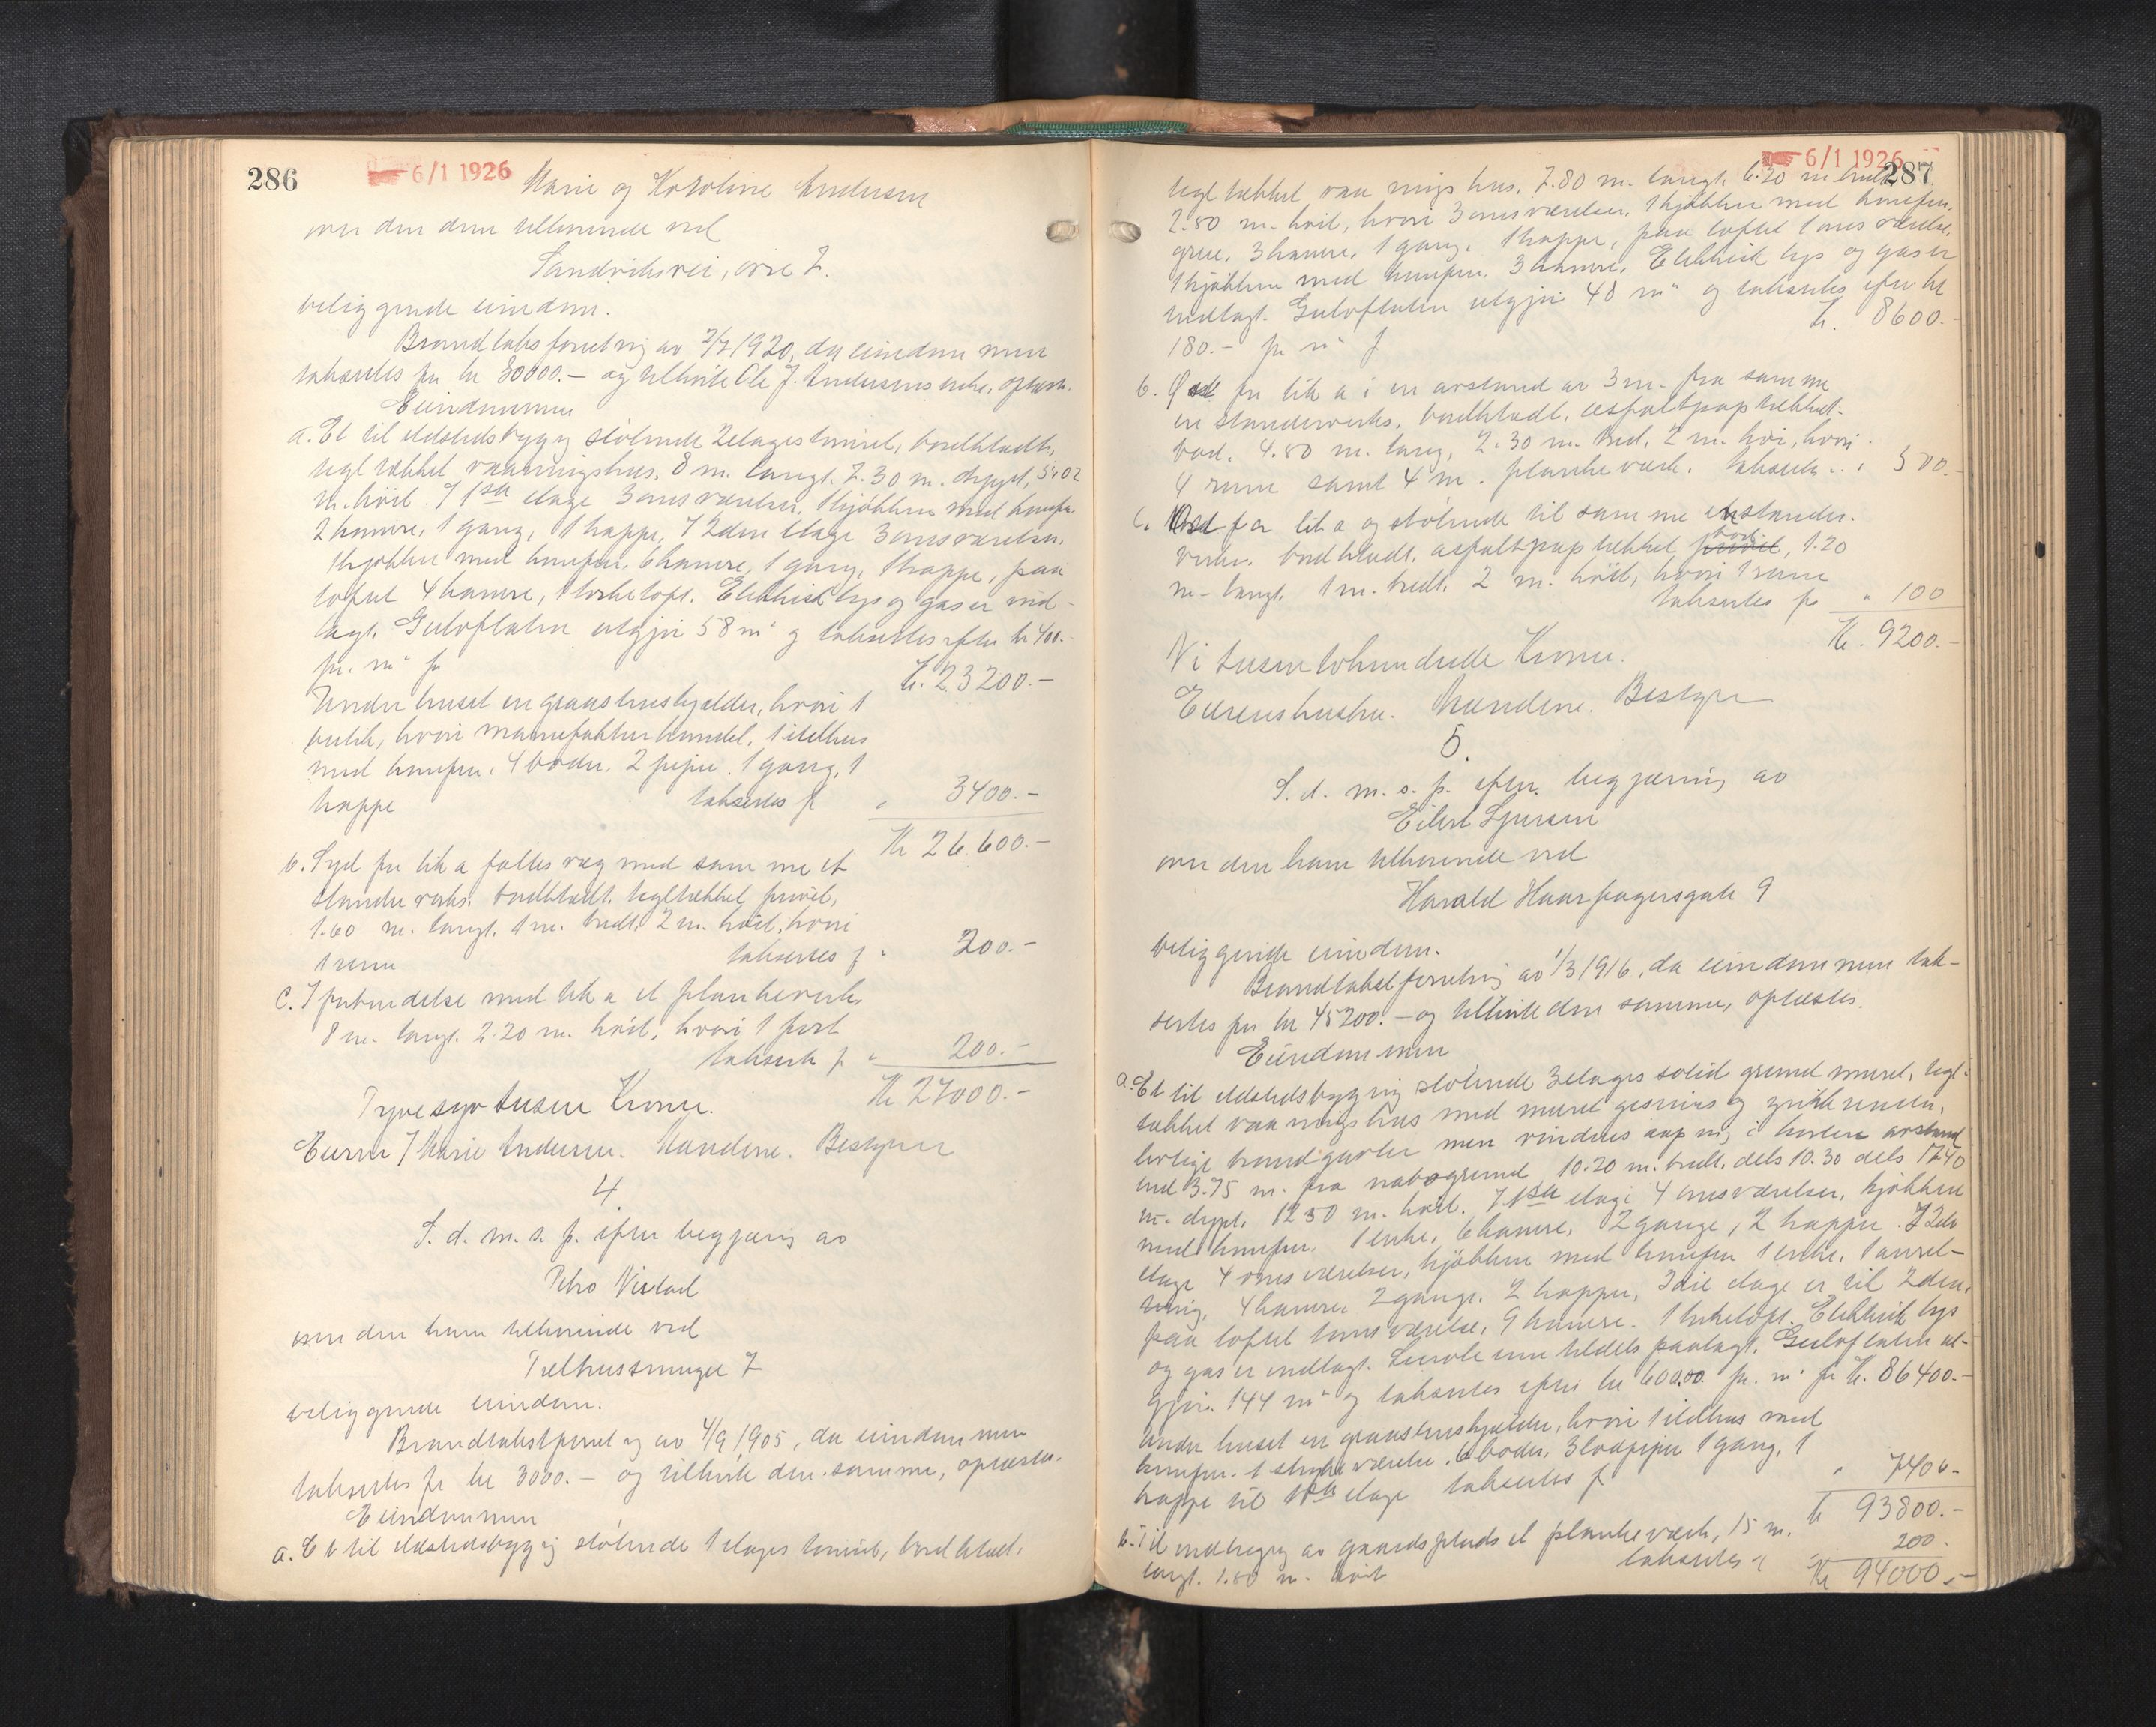 286
6/1 1926
Marie og Karoline Andersen
over den dem tilhörende ved
Sandviksvei, övre 7.
beliggende eiendom.
Brandtakstforretning av 2/7 1920, da eiendommen
taksertes for kr 30000.- og tilhörte Ole J. Andersens enke, oplæstes.
Eiendommen
a. Et til ildstedsbygg stötende 2etages tömret, bordklædt,
tegltækket vaaningshus, 8 m. langt. 7.30 m. dypt,
m. höit. I 1ste etage 3 omsværelser, 1 kjökken med komfur
2 kamre, 1 gang, 1 trappe, I 2den etage 3 omsværelser,
1 kjökken med komfur, 6 kamre, 1 gang, 1 trappe, paa
loftet 4 kamre, 1 törkeloft. Elektrisk lys og gas er ind-
lagt. Gulvflaten utgjör 58 m² og taksertes efter kr 400.-
pr. m² for
Kr. 23200.-
Under huset en graastenskjælder, hvori 1
butik, hvori manufakturhandel, 1 ildhus
med komfur, 4 boder, 2 piper, 1 gang, 1
trappe taksertes for " 3400.-
Kr 26.600.-
b. Syd for lit a fælles væg med samme et
standerverks, bordklædt, tegltækket privet,
1.60 m. langt, 1 m. bredt, 2 m. höit, hvori
1 rum taksertes for " 200.-
c. I forbindelse med lit a et plankeverk,
8 m. langt. 2.20 m. höit, hvori 1 port
taksert for " 200.-
Kr 27000.-
Tyvesyv tusen Kroner.
Eiere / Marie Andersen. Mændene. Bestyrer
4.
S. d. m. s. p. efter begjæring av
Peho Vistad
over den ham tilhörende ved
Tælhussmuget 7
beliggende eiendom.
Brandtakstforretning av 4/9 1905, da eiendommen
taksertes for kr 3000.- og tilhörte den samme, oplæstes.
Eiendommen
a. Et til ildstedsbygg stötende 1 etages tömret, bordklædt,
6/1 1926
287
tegltækket vaaningshus, 7.80 m. langt, 6.20 m bredt,
2.80 m. höit, hvori 3 omsværelser, 1 kjökken med komfur,
grue, 3 kamre, 1 gang, 1 trappe, paa loftet 1 omsværelse,
1 kjökken med komfur, 3 kamre. Elektrisk lys og gas er
indlagt. Gulvflaten utgjör 48 m² og taksertes efter kr
180.- pr m² for
Kr. 8600.-
b. Öst for lit a i en avstand av 3 m. fra samme
en standerverks, bordklædt, asfaltpaptækket
bod, 4.80 m. lang, 2.30 m. bred, 2 m. höi, hvori
4 rum samt 4 m. plankeverk. taksertes " 500.-
c. Öst for lit a og stötende til samme et stander-
verks, bordklædt, asfaltpaptækket privet, bod 1.20
m. langt, 1 m. bredt, 2 m. höit, hvori 1 rum
taksertes for " 100
Kr. 9200.-
Ni tusen tohundrede Kroner.
Eierens hustru. Mændene. Bestyrer
5.
S. d. m. s. p. efter begjæring av
Eilert Sjursen
over den ham tilhörende ved
Harald Haarfagersgate 9
beliggende eiendom.
Brandtakstforretning av 1/3 1916, da eiendommen tak-
sertes for kr 45200.- og tilhörte den samme, oplæstes.
Eiendommen
a. Et til ildstedsbygg stötende 3etages solid grundmuret, tegl-
tækket vaaningshus med muret gesims og zinkrender,
lovlige brandgavler men vinduesaapning i kortere avstand
end 3.75 m. fra nabogrund 10.20 m. bredt, dels 10.30 dels 17.40
m. dypt, 12.50 m. höit. I 1ste etage 4 omsværelser, kjökken
med komfur, 1 entre, 6 kamre, 2 gange, 2 trapper. I 2den
etage 4 omsværelser, kjökken med komfur 1 entre, 1 anret-
ning, 4 kamre 2 gange, 2 trapper, 3die etage er lik 2den,
paa loftet 1 omsværelse, 9 kamre, 1 törkeloft. Elektrisk lys
og gas er indlagt. Linoleum tildels paalagt. Gulvflaten ut-
gjör 144 m² og taksertes efter kr 600.00 pr. m² for Kr. 86400.-
Under huset en graastenskjælder, hvori 1 ildhus med
komfur, 1 strykeværelse, 6 boder, 3 lodpiper 1 gang, 1
trappe til 1ste etage taksertes for " 7400-
Kr 93800.-
b. Til indhegning av gaardsplads et plankeverk, 15 m.
langt. 1.80 m. höit taksertes for 200.
Kr 94000.-